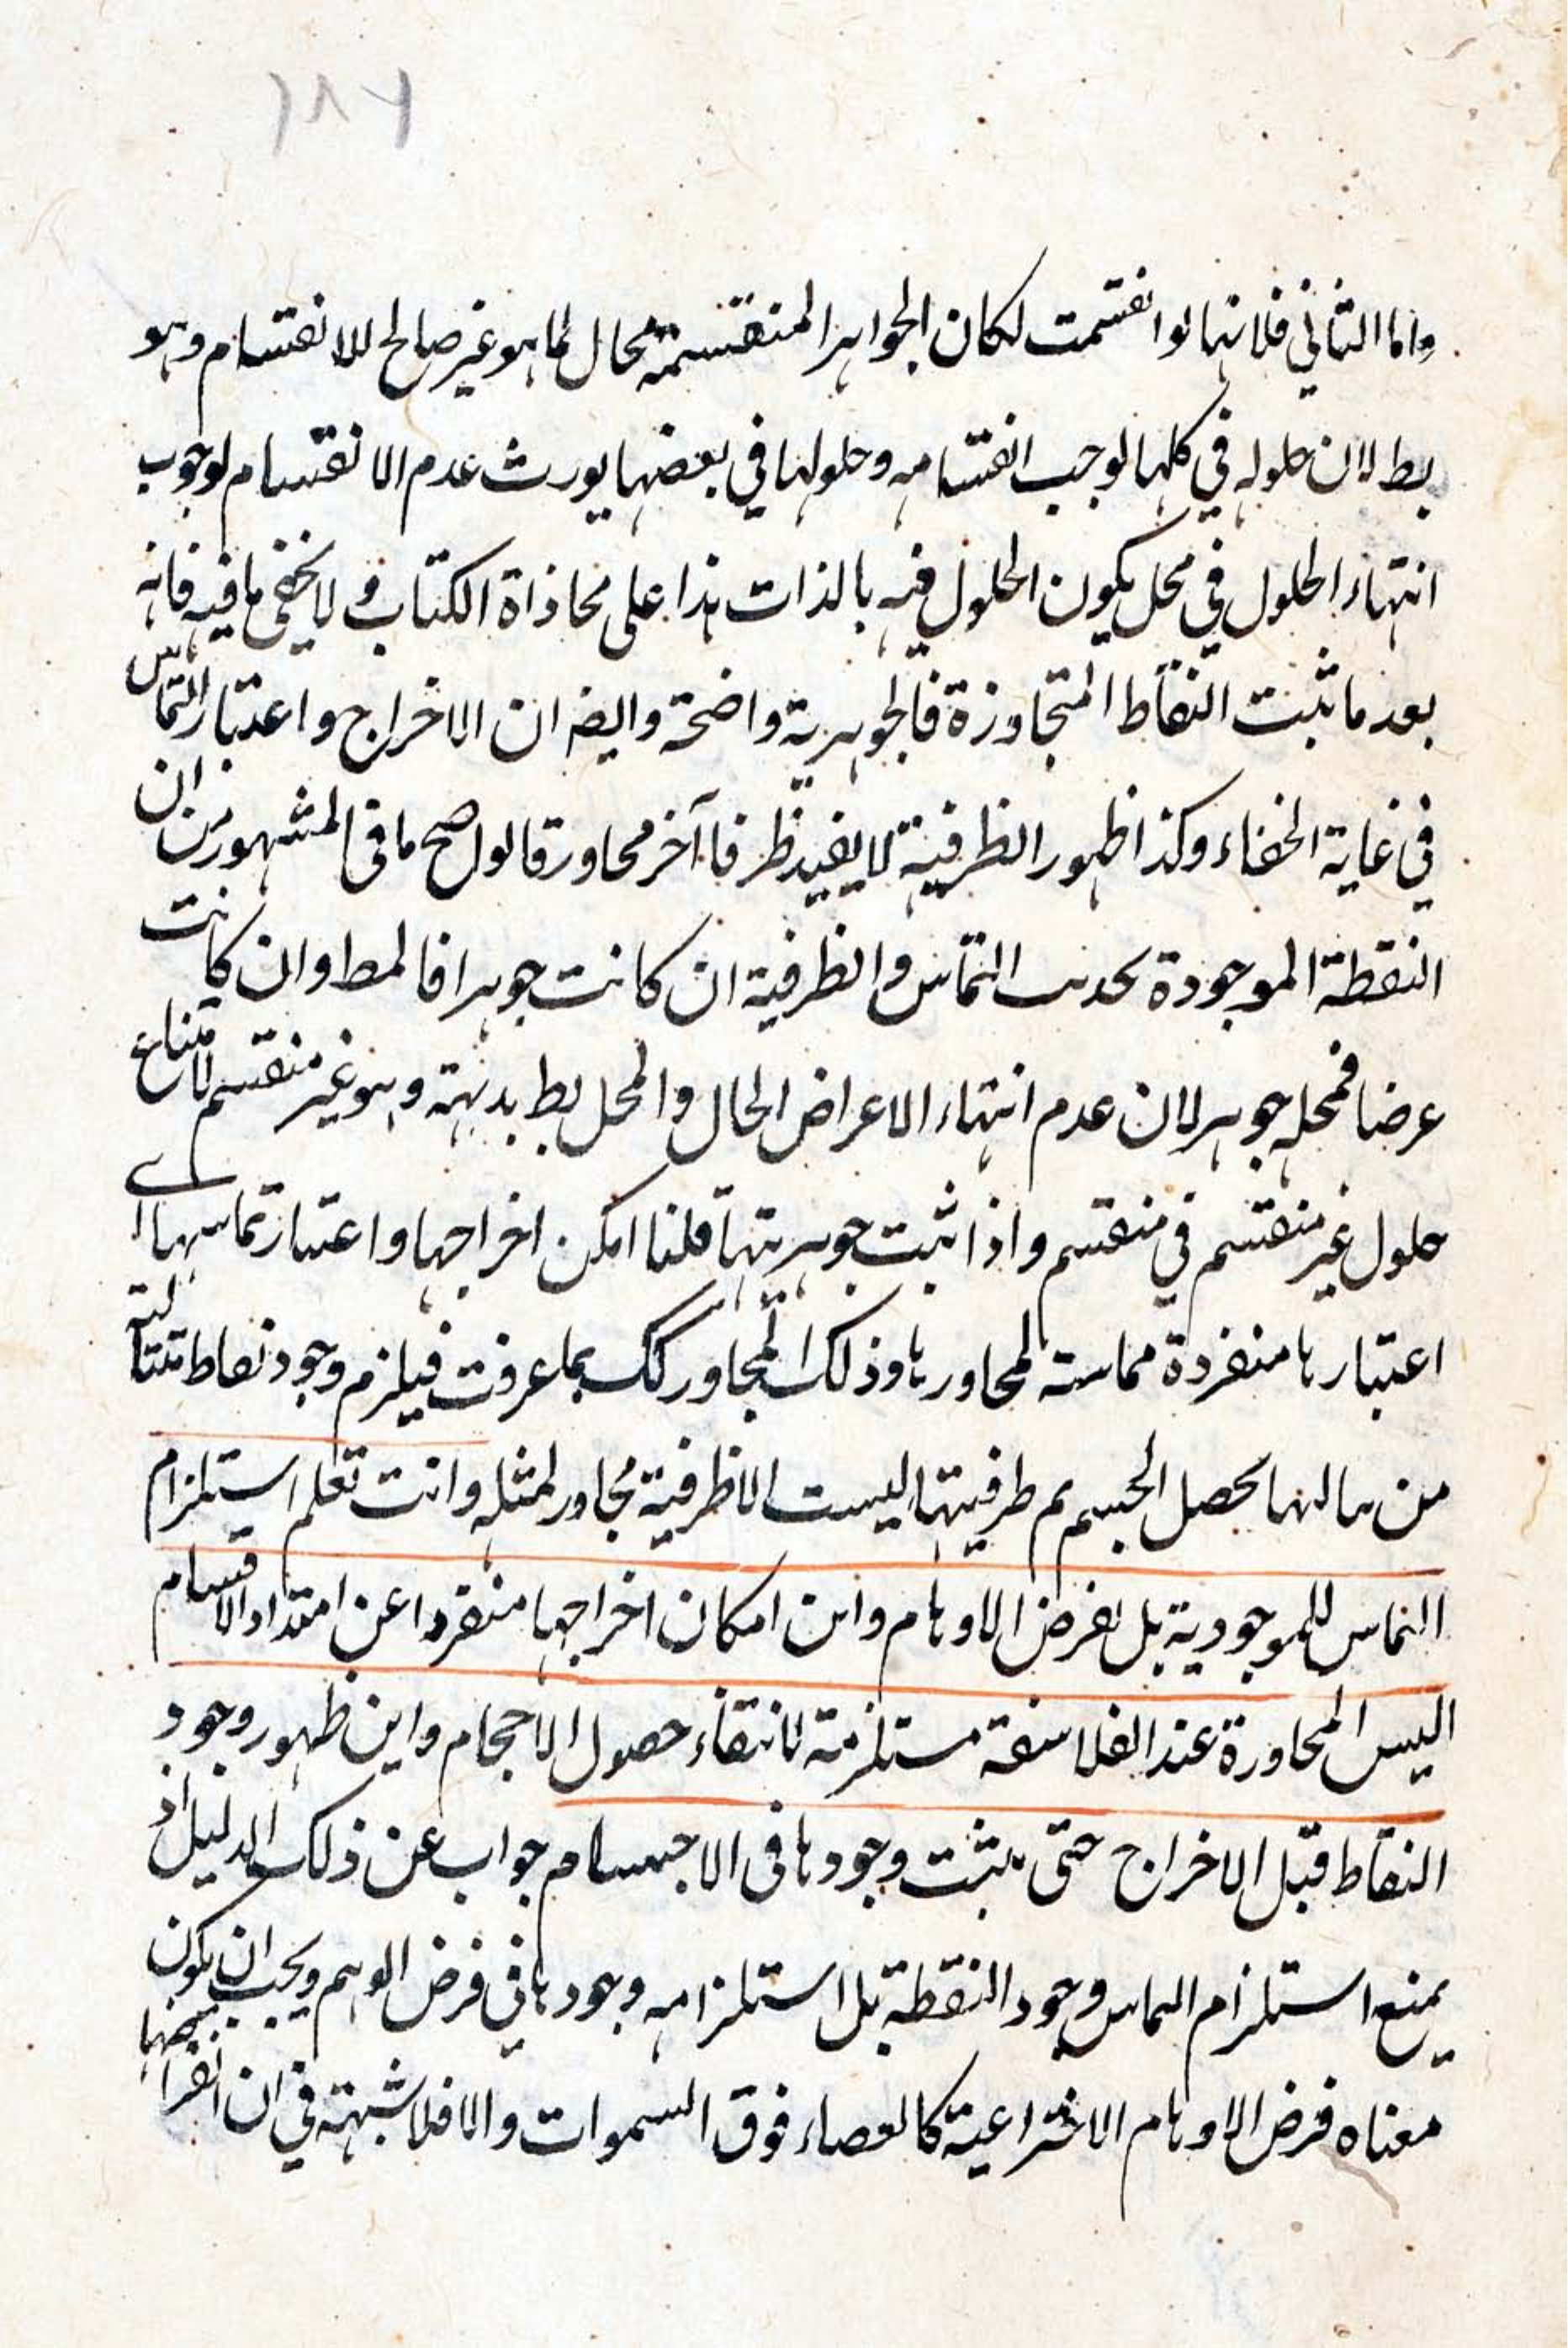 ١٨٦
واما الثاني فلانها لو انقسمت لكان الجواهر المنقسمة محال لما هو غير صالح للانقسام وهو
بط لان حلوله في كلها لوجب انقسامه وحلولها في بعضها يورث عدم الانقسام لوجوب
انتهاء الحلول في محل يكون الحلول فيه بالذات هذا على محاذاة الكتاب ولا يخفى ما فيه فانه
بعد ما ثبت النقاط المتجاوزة فالجوهرية واضحة وايضا ان الاخراج واعتبار التماس
في غاية الخفاء وكذا ظهور الظرفية لا يفيد ظرفا آخر محاورة قالوا صح ما في المشهور من ان
النقطة الموجودة بحدث التماس والظرفية ان كانت جوهرا فالمط وان كانت
عرضا فمحله جوهر لان عدم انتهاء الاعراض الحال والمحل بط بديهة وهو غير منقسم لامتناع
حلول غير منقسم في منقسم واذا ثبت جوهريتها قلنا امكن اخراجها واعتبار تماسها اے
اعتبارها منفردة مماسته لمحاورها وذلك المجاور كك بما عرفت فيلزم وجود نقاط متتالية
من مالها يحصل الجسم م طرفيتها ليست الا ظرفية مجاور لمثله وانت تعلم استلزام
التماس للموجودية بل بفرض الاوهام واين امكان اخراجها منفردا عن امتداد الاقسام
اليس المحاورة عند الفلاسفة مستلزمة لانتفاء حصول الاحجام واين ظهور وجود
النقاط قبل الاخراج حتى يثبت وجودها في الاجسام جواب عن ذلك الدليل اذ
يمنع استلزام التماس وجود النقطة بل استلزامه وجودها في فرض الوهم ويجب ان يكون
معناه فرض الاوهام الاختراعية كالعصاء فوق السموات والا فلا شبهة في ان انفراضها